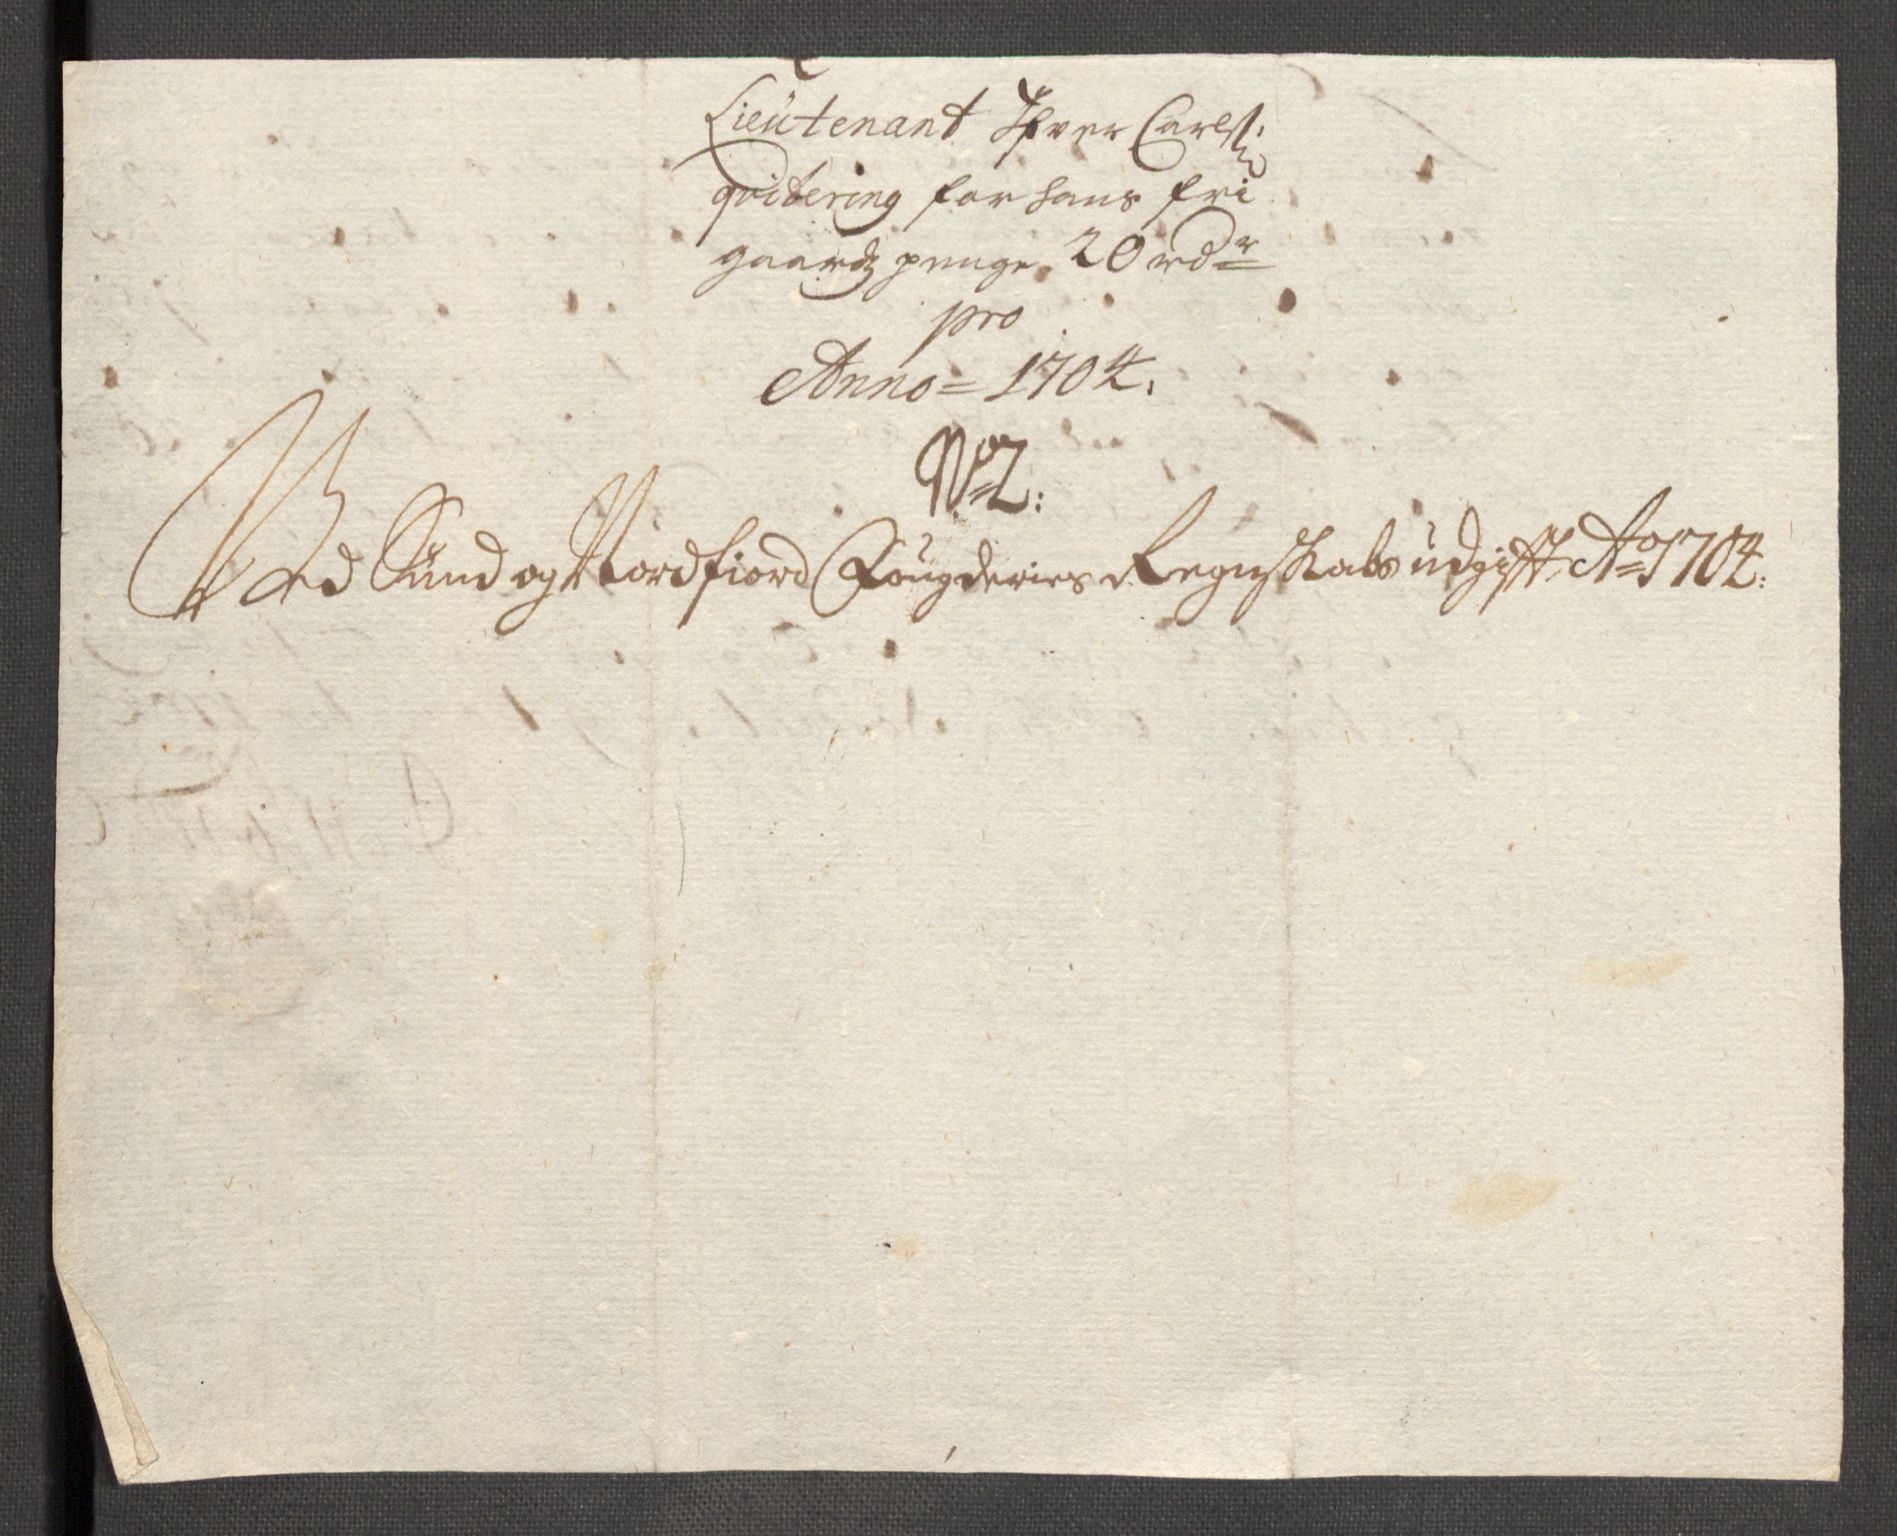 Lieütenant Ifver Carlß:
qvitering for hans fri
gaards penge 20 rdr
pro
Anno = 1704.
No 2:
Ved Sünd og Nordfiord Fougderies Regnskabs üdgifft Ao 1704: